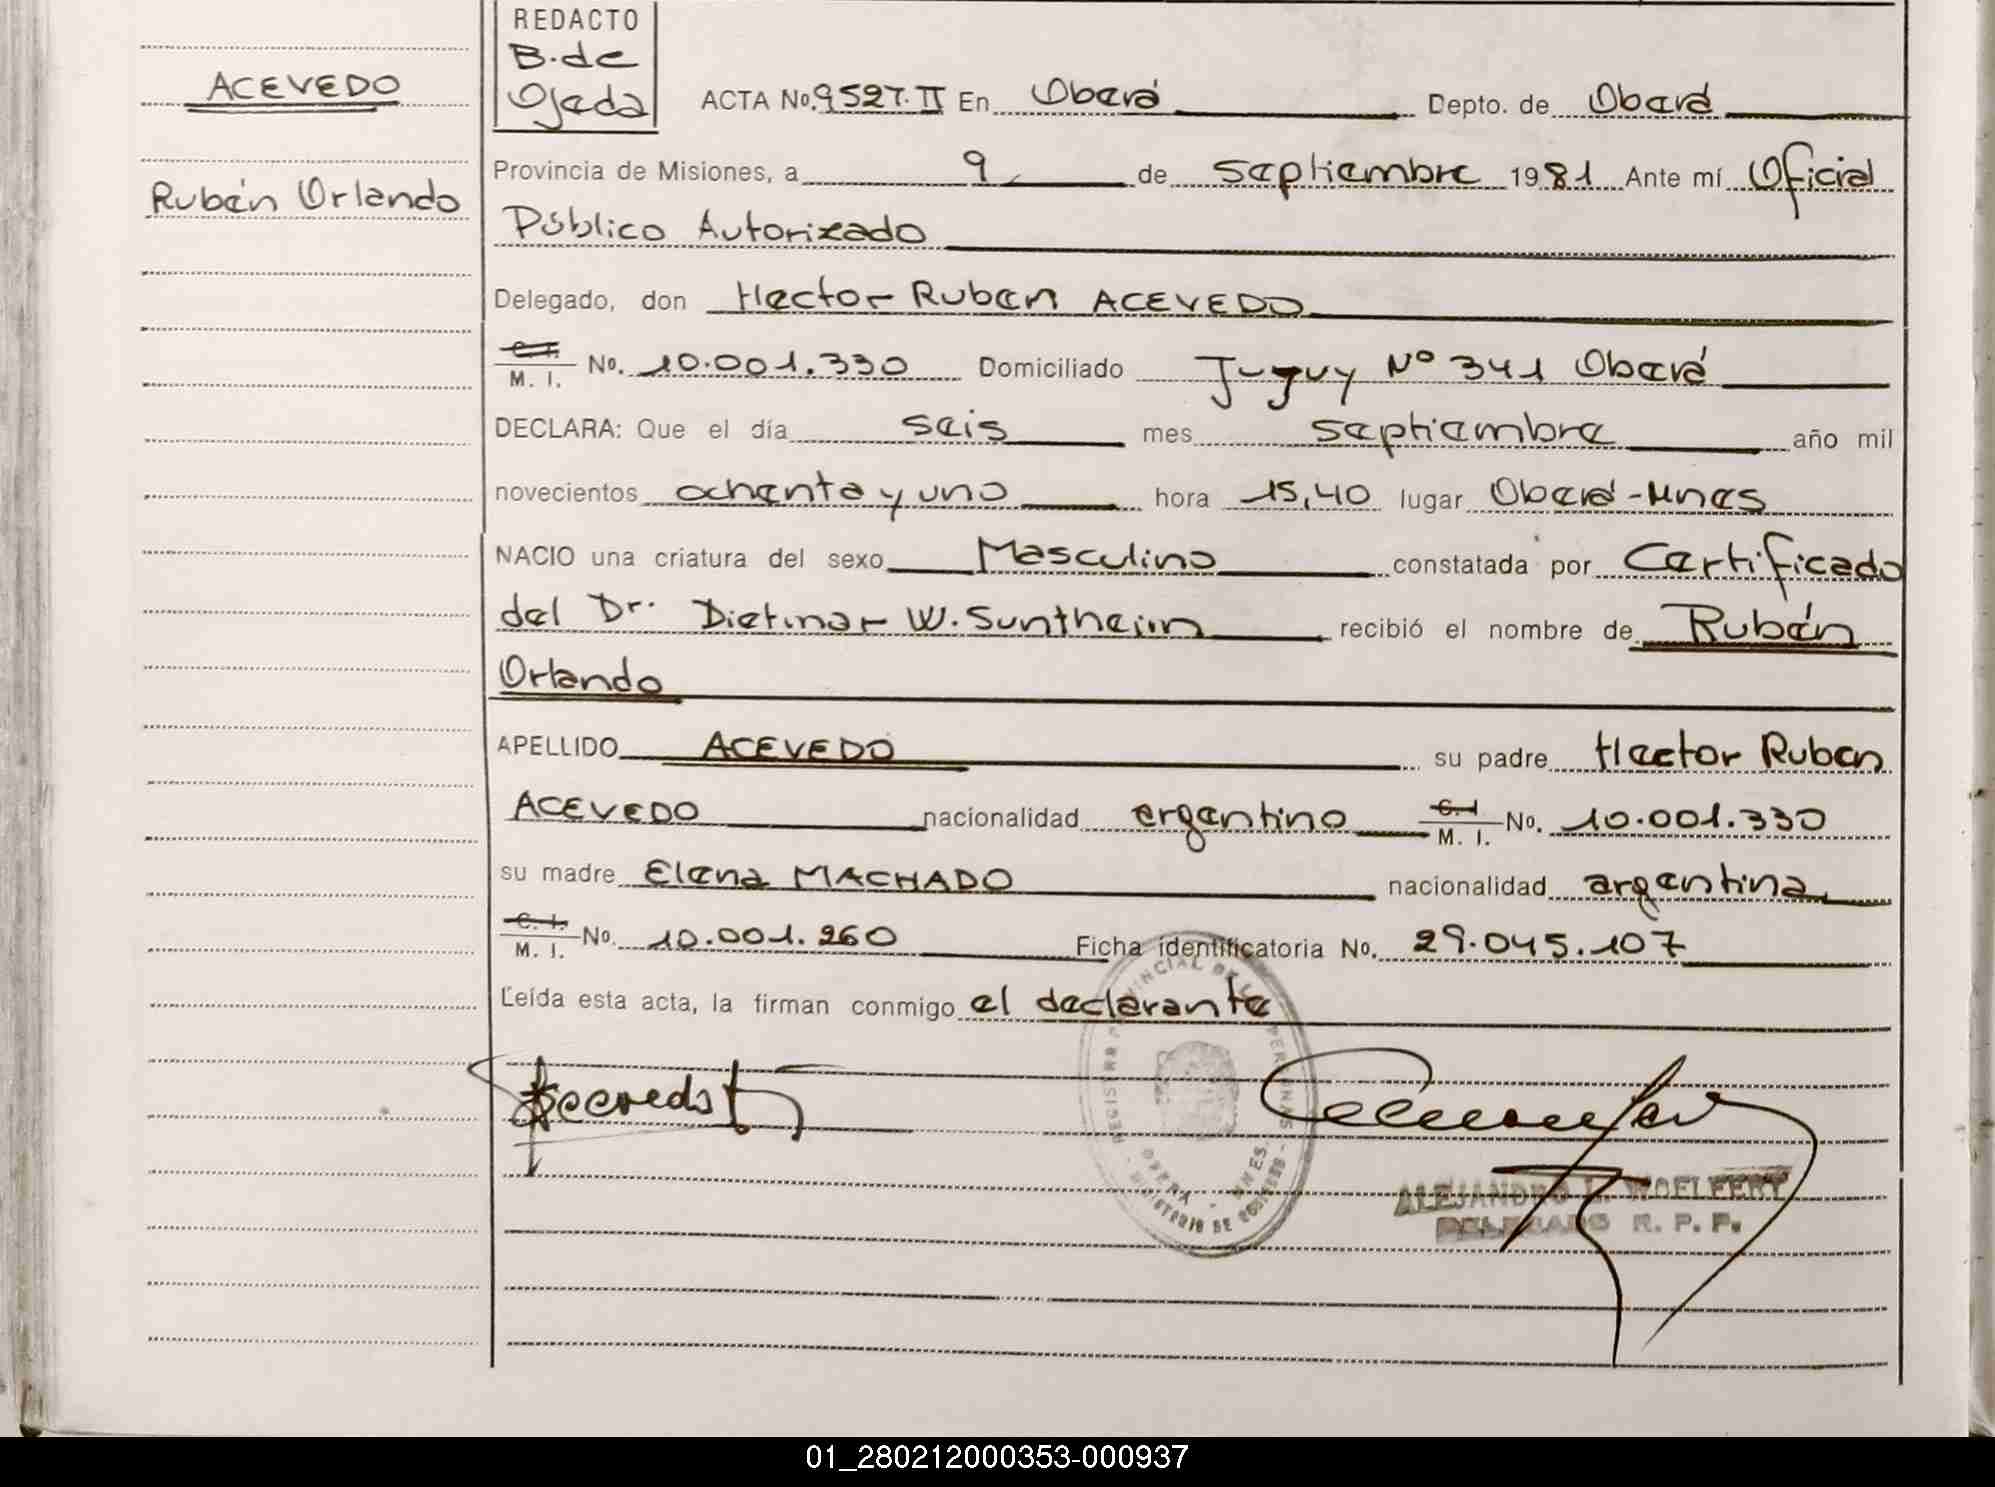 REDACTO
B. de
Ojeda
ACEVEDO
Rubén Orlando
ACTA No. 9527. II En Oberá Depto. de Oberá
Provincia de Misiones, a 9 de septiembre 1981 Ante mí Oficial
Público Autorizado
Delegado, don Hector Ruben ACEVEDO
C. I. M. I. No. 10.001.330 Domiciliado Jujuy Nº 341 Oberá
DECLARA: Que el día seis mes septiembre año mil
novecientos ochenta y uno hora 15,40 lugar Oberá-Mnes
NACIO una criatura del sexo Masculino constatada por Certificado
del Dr. Dietmar W. Suntheim recibió el nombre de Rubén
Orlando
APELLIDO ACEVEDO su padre Hector Ruben
ACEVEDO nacionalidad argentino C. I M. I. No. 10.001.330
su madre Elena MACHADO nacionalidad argentina
C. I. M. I. No. 10.001.260 Ficha identificatoria No. 29.045.107
Leída esta acta, la firman conmigo el declarante
Acevedo
REGISTRO PROVINCIAL DE LAS PERSONAS
OBERA - MNES.
- MINISTERIO DE GOBIERNO -
ALEJANDRO L. WOELFERT
DELEGADO R. P. P.
01_280212000353-000937